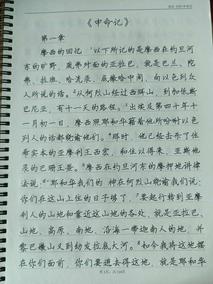 《申命记》
第一章
摩西的回忆 ¹以下所记的是摩西在约旦河
东的旷野，疏弗对面的亚拉巴，就是巴兰、陀
弗、拉班、哈洗录、底撒哈中间，向以色列众
人所说的话。²从何烈山经过西珥山，到加低斯巴
尼亚，有十一天的路程。³出埃及第四十年十
一月初一日，摩西照耶和华藉着他所吩咐以色
列人的话都晓谕他们。⁴那时，他已经击杀了住
希实本的亚摩利王西宏，和住以得来、亚斯他
录的巴珊王噩。⁵摩西在约旦河东的摩押地讲律
法说：⁶“耶和华我们的 神在何烈山晓谕我们说：
你们在这山上住的日子够了，⁷要起行转到亚摩
利人的山地和靠近这山地的各处，就是亚拉巴、
山地、高原、南地、沿海一带迦南人的地，并
黎巴嫩山又到幼发拉底大河。⁸如今我将这地摆
在你们面前，你们要进去得这地，就是耶和华